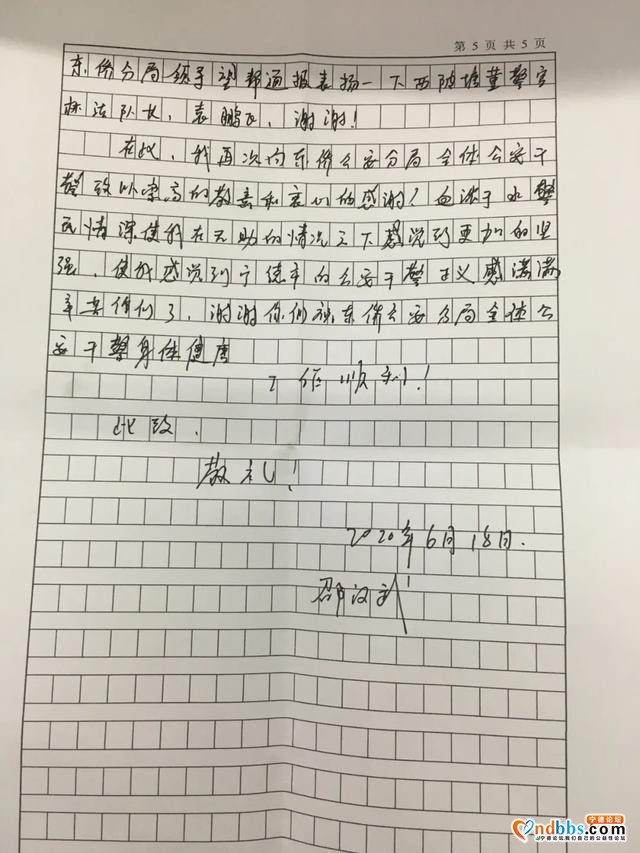 第 5 页 共 5 页
东侨分局 望帮通报表扬一下西陂塘董警官
林法队长，袁鹏飞，谢谢！
在此，我再次向东侨公安分局全体公安干
警致以崇高的敬意和衷心的感谢！血浓于水警
民情深使我在无助的情况之下感觉到更加的坚
强、使我感觉到宁德市的公安干警正义感满满
辛苦你们了，谢谢你们祝东侨公安分局全体公
安干警身体健康
工作顺利！
此致、
敬礼！
2020年6月18日.
邵汉武
宁德论坛
ndbbs.com
宁德论坛,我们自己的公益性论坛